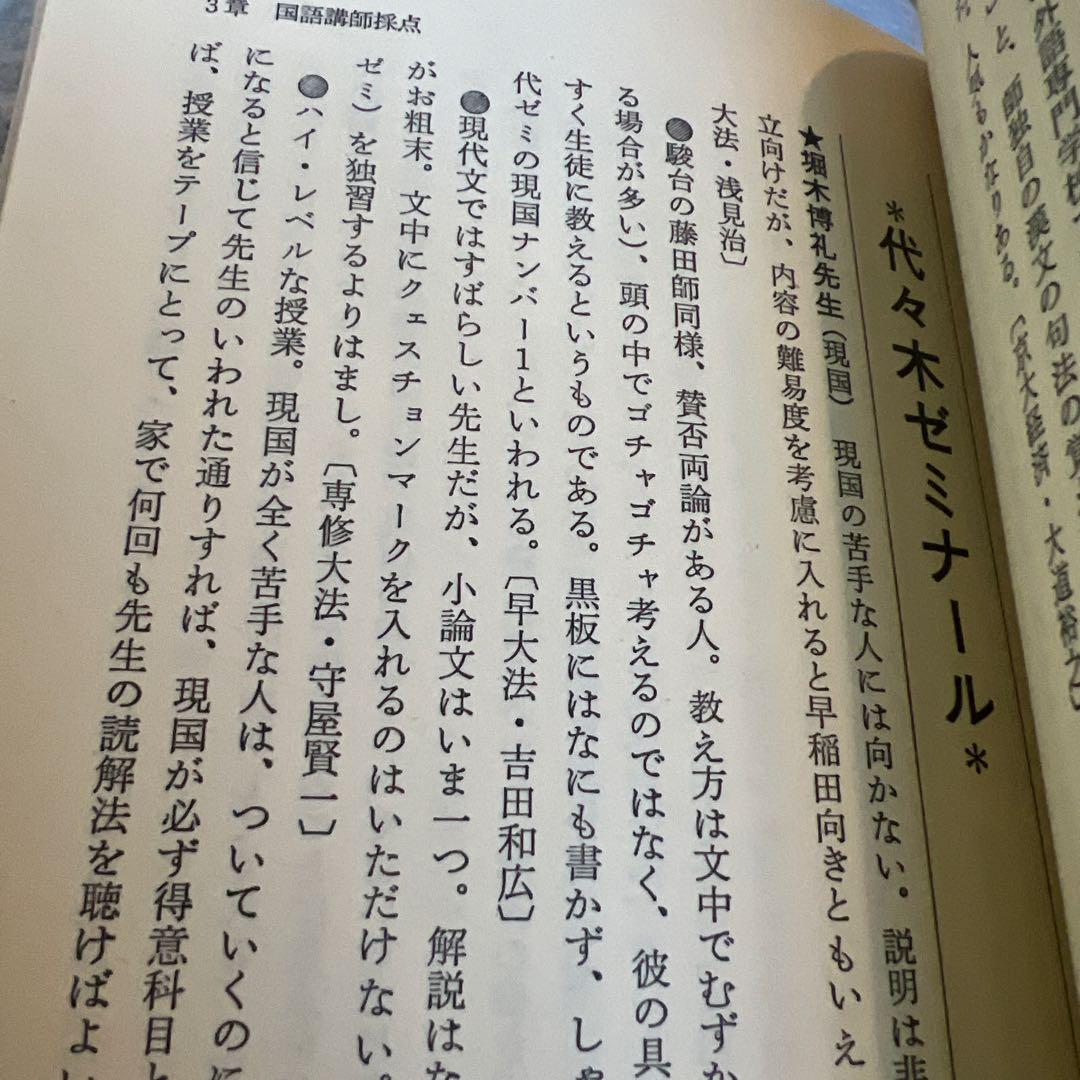 3章　国語講師採点
外語専門学校
師独自の漢文の句法の覚
人気もかなりある。〔京大経済・大道裕之〕
＊代々木ゼミナール＊
★堀木博礼先生（現国）　現国の苦手な人には向かない。説明は非
立向けだが、内容の難易度を考慮に入れると早稲田向きともいえ
大法・浅見治〕
●駿台の藤田師同様、賛否両論がある人。教え方は文中でむずか
る場合が多い）、頭の中でゴチャゴチャ考えるのではなく、彼の具
すく生徒に教えるというものである。黒板にはなにも書かず、しゃ
代ゼミの現国ナンバー1といわれる。〔早大法・吉田和広〕
●現代文ではすばらしい先生だが、小論文はいま一つ。解説はな
がお粗末。文中にクェスチョンマークを入れるのはいただけない。
ゼミ）を独習するよりはまし。〔専修大法・守屋賢一〕
●ハイ・レベルな授業。現国が全く苦手な人は、ついていくのに
になると信じて先生のいわれた通りすれば、現国が必ず得意科目と
ば、授業をテープにとって、家で何回も先生の読解法を聴けばよい